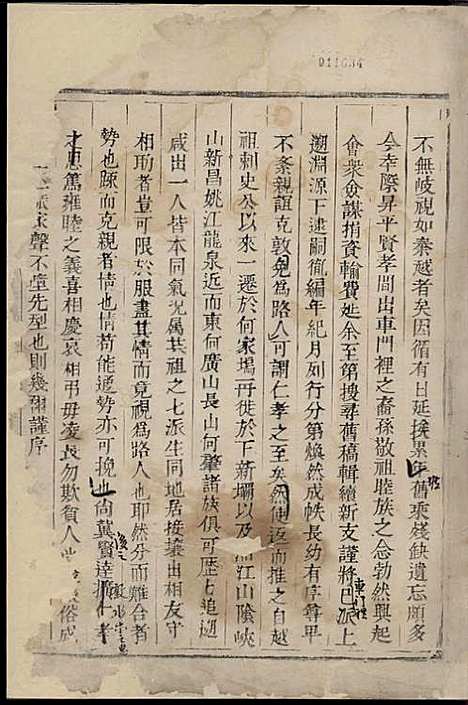 011634
不無岐視如秦越者矣因循有日延挨累年舊乘殘缺遺忘頗多
今幸際昇平賢孝間出車門裡之裔孫敬祖睦族之念勃然興起
會衆僉謀捐資輸費延余至第搜尋舊稿輯續新支謹將已派上
遡淵源下逮嗣胤編年紀月列行分第煥然成帙長幼有序尊卑
不紊親誼克敦免爲路人可謂仁孝之至矣然使返而推之自越
祖刺史公以來一遷於何家塢再徙於下新壩以及江山陰峽
山新昌姚江龍泉近而東何廣山長山何肇諸族俱可歷七追遡
咸出一人皆本同氣況属其祖之七派生同地居接壤出相友守
相助者豈可限於服盡其情而竟視爲路人也耶然分而難合者
勢也踈而克親者情也情苟能通勢亦可挽也尚冀賢達擴仁孝
之思篤雍睦之義喜相慶哀相弔毋凌長勿欺貧人俗成
家聲不墮先型也則幾矣謹序